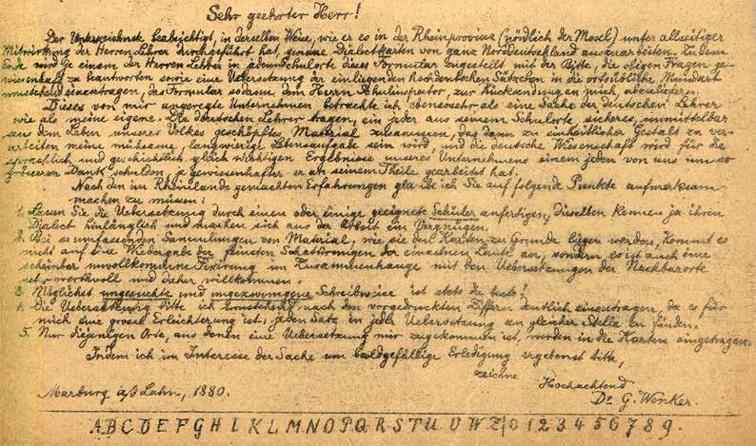 Sehr geehrter Herr!
Der Unterzeichnete beabsichtigt, in derselben Weise, wie er es in der Rheinprovinz (nördlich der Mosel) unter allseitiger
Mitwirkung der Herren Lehrer durchgeführt hat, genaue Dialectkarten von ganz Norddeutschland auszuarbeiten. Zu dem
Ende wird je einem der Herren Lehrer in jedem Schulorte dieses Formular zugestellt mit der Bitte, die obigen Fragen ge-
wissenhaft zu beantworten sowie eine Uebersetzung der einliegenden hochdeutschen Sätzchen in die ortsübliche Mundart
umstehend einzutragen, das Formular sodann dem Herrn Schulinspector, zur Rücksendung an mich, abzuliefern.
Dieses von mir angeregte Unternehmen betrachte ich ebensosehr als eine Sache der deutschen Lehrer
wie als meine eigene. Die deutschen Lehrer tragen, ein jeder aus seinem Schulorte, sicheres, unmittelbar
aus dem Leben unseres Volkes geschöpftes Material zusammen, das dann zu einheitlicher Gestalt zu ver-
arbeiten meine mühsame, langwierige Lebensaufgabe sein wird, und die deutsche Wissenschaft wird für die
sprachlich und geschichtlich gleich wichtigen Ergebnisse unseres Unternehmens einem jeden von uns um so
grösseren Dank schulden, je gewissenhafter er an seinem Theile gearbeitet hat.
Nach den im Rheinlande gemachten Erfahrungen glaube ich Sie auf folgende Punkte aufmerksam
machen zu müssen:
1. Lassen Sie die Uebersetzung durch einen oder einige geeignete Schüler anfertigen, dieselben kennen ja ihren
Dialect hinlänglich und machen sich aus der Arbeit ein Vergnügen.
2. Bei so umfassenden Sammlungen von Material, wie sie den Karten zu Grunde liegen werden, kommt es
nicht auf eine Wiedergabe der feinsten Schattirungen der einzelnen Laute an, sondern es ist auch eine
scheinbar unvollkommene Fixirung im Zusammenhange mit den Uebersetzungen der Nachbarorte
ist werthvoll und daher willkommen.
3. Möglichst ungesuchte und ungezwungene Schreibweise ist stets die beste!
4. Die Uebersetzung bitte ich umstehend nach den vorgedruckten Ziffern deutlich einzutragen, da es für
mich eine grosse Erleichterung ist, jeden Satz in jeder Uebersetzung an gleicher Stelle zu finden.
5. Nur diejenigen Orte, aus denen eine Uebersetzung mir zugekommen ist, werden in die Karten eingetragen.
Indem ich im Interesse der Sache um baldgefällige Erledigung ergebenst bitte,
zeichne
Hochachtend
Marburg a/d Lahn, 1880.
Dr. G. Wenker.
A B C D E F G H I K L M N O P Q R S T U V W Z | 0 1 2 3 4 5 6 7 8 9.